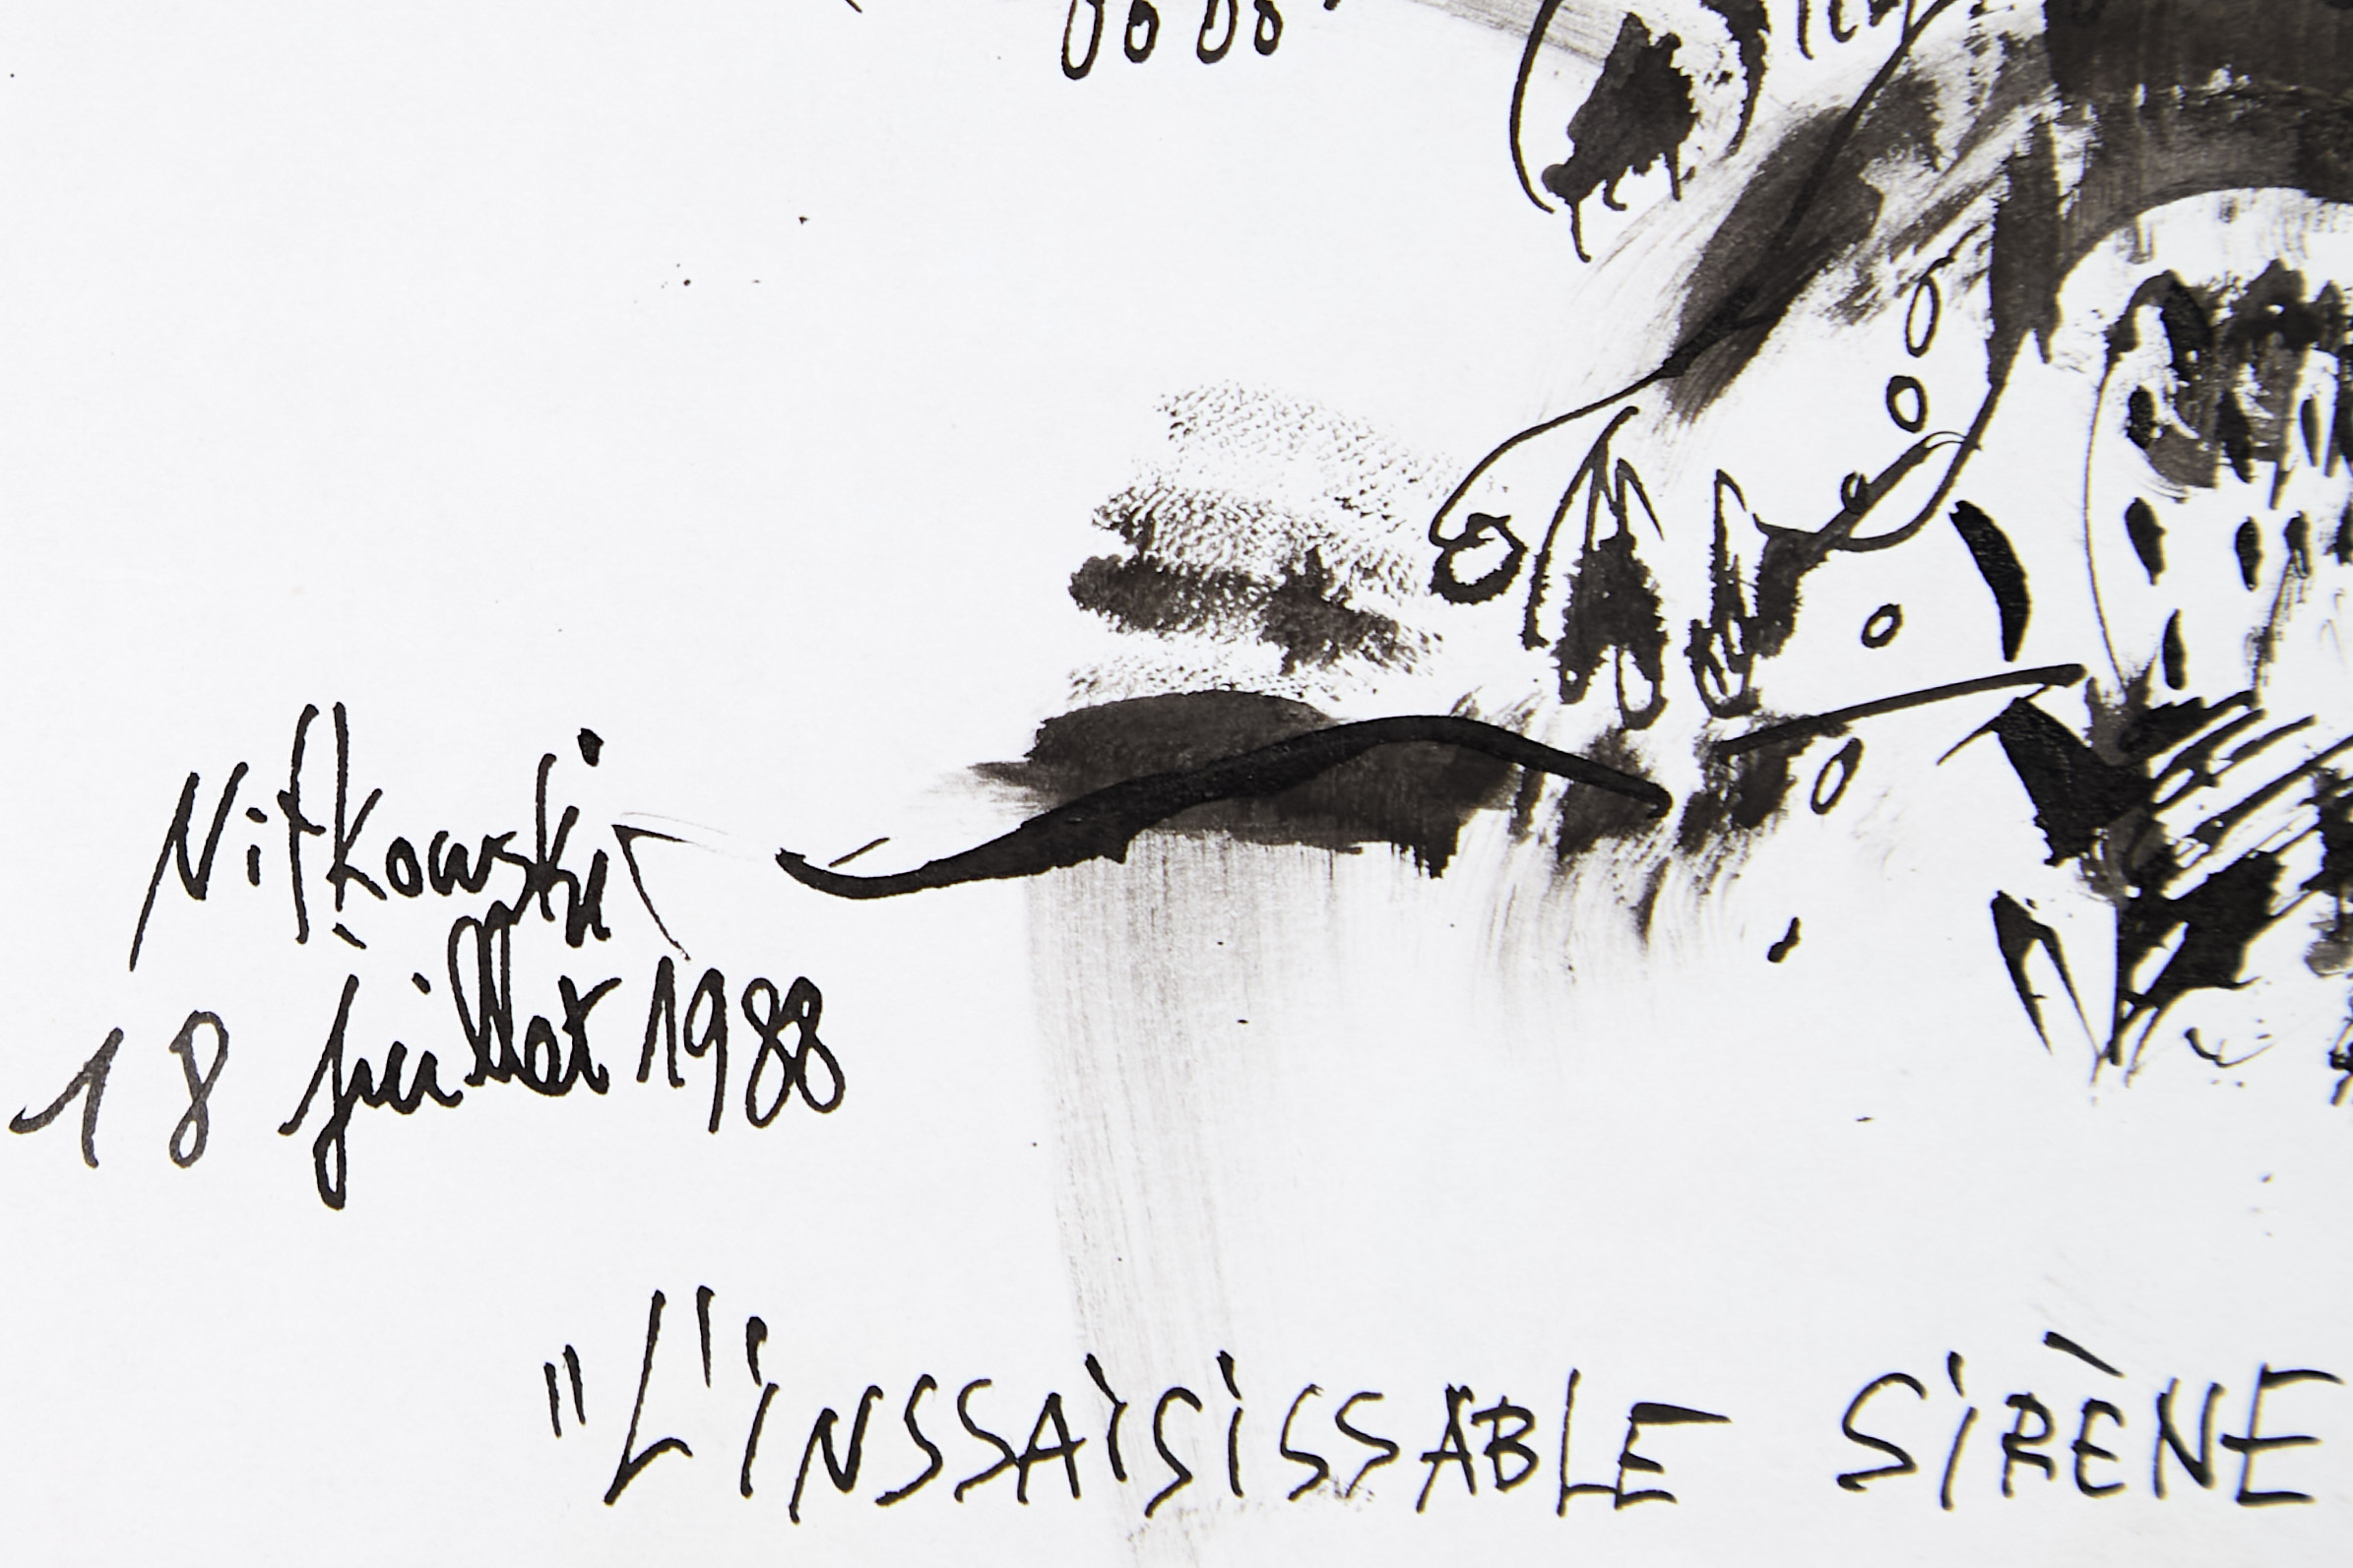 Nitkowski
18 juillet 1988
"L'iNSSAiSiSSABLE SiRÈNE